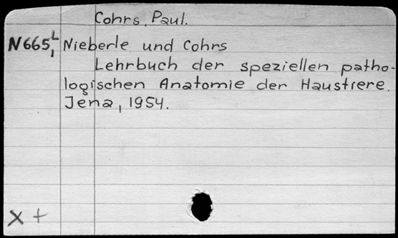 Cohrs, Paul.
N665,L1 Nieberle und Cohrs
Lehrbuch der speziellen patho-
logischen Anatomie der Haustiere.
Jena, 1954.
x +